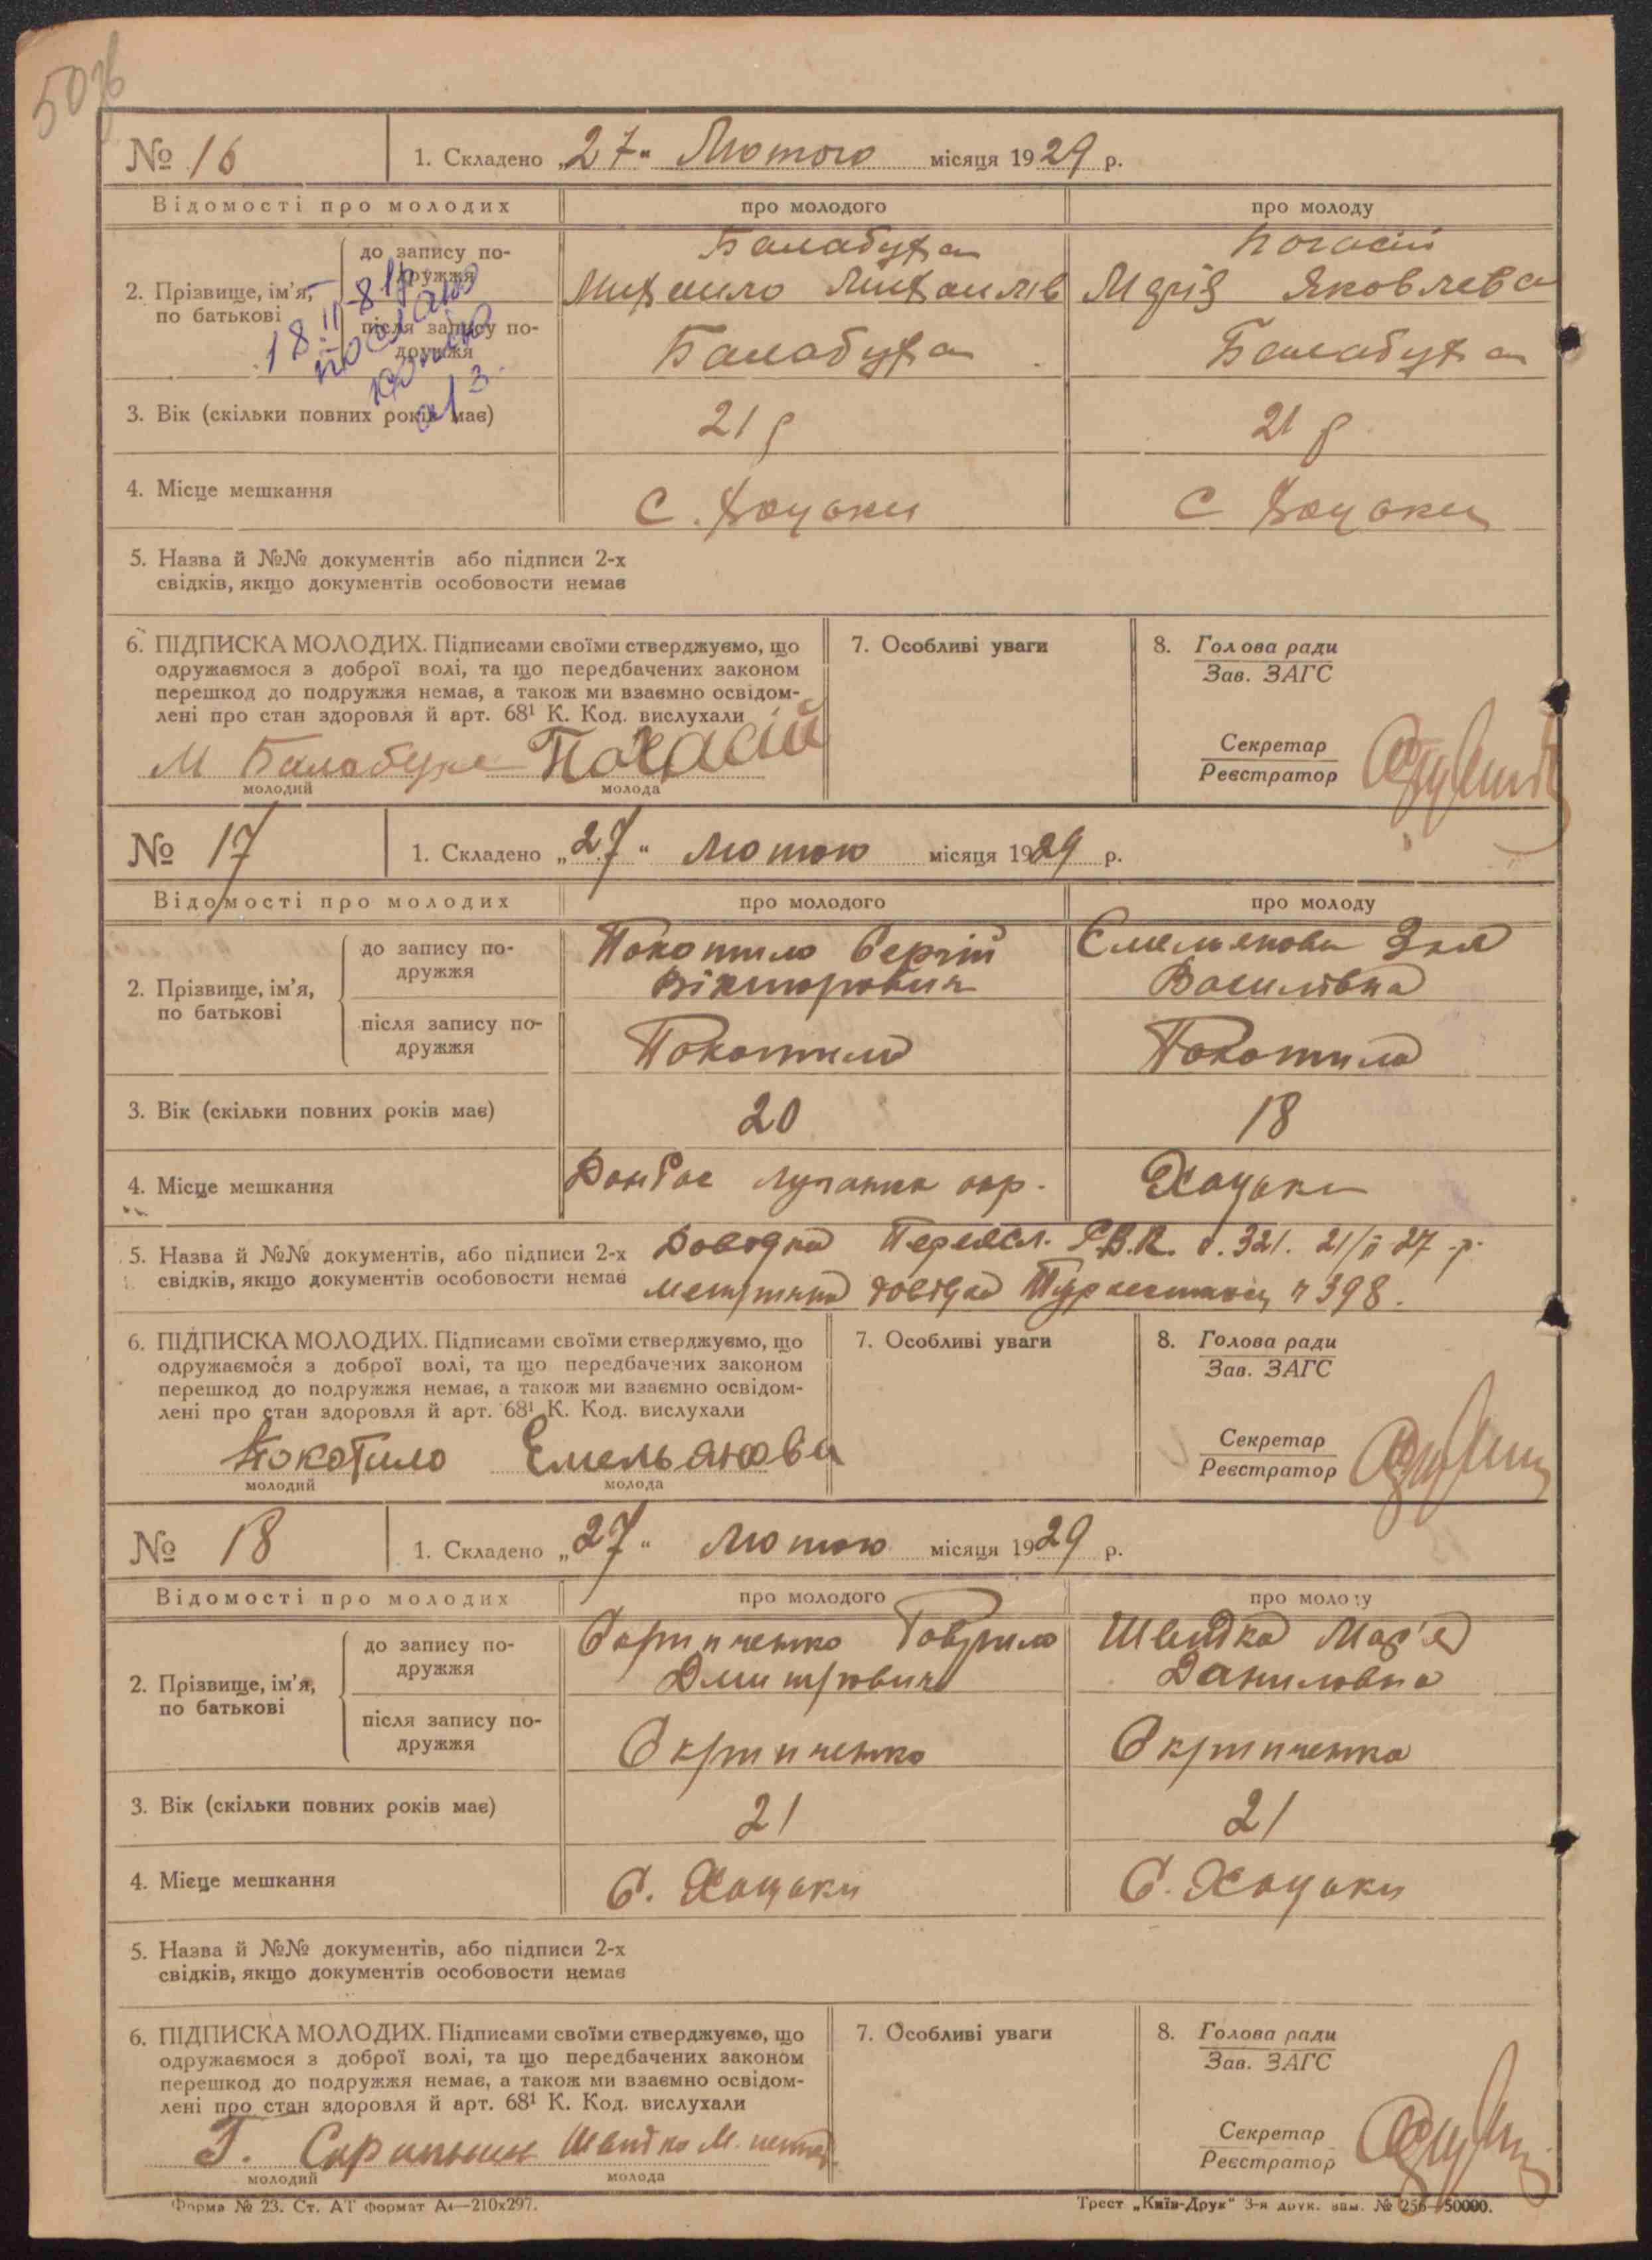 50зв
№ 16
1. Складено „27“ Лютого місяця 1929 р.
Відомості про молодих
про молодого
про молоду
2. Прізвище, ім’я, по батькові
до запису по-
дружжя
Балабуха
Михайло Михайлів
Погасій
Марія Яковлева
після запису по-
дружжя
Балабуха
Балабуха
18.II-81р
послано
копію
а/з.
3. Вік (скільки повних років має)
21 р
21 р.
4. Місце мешкання
С. Хоцьки
С Хоцьки
5. Назва й №№ документів або підписи 2-х
свідків, якщо документів особовости немає
6. ПІДПИСКА МОЛОДИХ. Підписами своїми стверджуємо, що
одружаємося з доброї волі, та що передбачених законом
перешкод до подружжя немає, а також ми взаємно освідом-
лені про стан здоровля й арт. 68¹ К. Код. вислухали
М Балабуха Погасій
молодий
молода
7. Особливі уваги
8. Голова ради
Зав. ЗАГС
Секретар
Реєстратор
№ 17
1. Складено „27“ Лютого місяця 1929 р.
Відомості про молодих
про молодого
про молоду
2. Прізвище, ім’я,
по батькові
до запису по-
дружжя
Покотило Сергій
Вікторович
Смельянова Зоя
Василівна
після запису по-
дружжя
Покотило
Покотило
3. Вік (скільки повних років має)
20
18
4. Місце мешкання
Донбас Луганка окр.
Хоцьки
5. Назва й №№ документів, або підписи 2-х
свідків, якщо документів особовости немає
Довідка Переясл. Р.В.К. 321. 21/II 27 р.
довідка ч 398.
6. ПІДПИСКА МОЛОДИХ. Підписами своїми стверджуємо, що
одружаємося з доброї волі, та що передбачених законом
перешкод до подружжя немає, а також ми взаємно освідом-
лені про стан здоровля й арт. 68¹ К. Код. вислухали
Покотило Емельянова
молодий
молода
7. Особливі уваги
8. Голова ради
Зав. ЗАГС
Секретар
Реєстратор
№ 18
1. Складено „27“ Лютого місяця 1929 р.
Відомості про молодих
про молодого
про молоду
2. Прізвище, ім’я,
по батькові
до запису по-
дружжя
Скрипченко Гаврило
Дмитрович
Швидка Мар'я
Даниловна
після запису по-
дружжя
Скрипченко
Скрипченко
3. Вік (скільки повних років має)
21
21
4. Місце мешкання
С. Хоцьки
С. Хоцьки
5. Назва й №№ документів, або підписи 2-х
свідків, якщо документів особовости немає
6. ПІДПИСКА МОЛОДИХ. Підписами своїми стверджуємо, що
одружаємося з доброї волі, та що передбачених законом
перешкод до подружжя немає, а також ми взаємно освідом-
лені про стан здоровля й арт. 68¹ К. Код. вислухали
Г. Швидка М.
молодий
молода
7. Особливі уваги
8. Голова ради
Зав. ЗАГС
Секретар
Реєстратор
Форма № 23. Ст. АТ формат А4—210x297.
Трест „Київ-Друк“ 3-я друк. зам. № 256—50000.